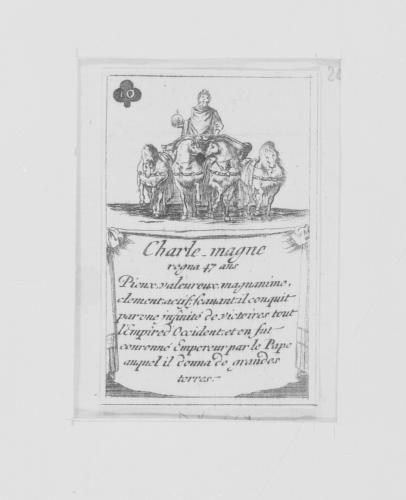 10
Charle-magne
regna 47 ans
Pieux, valeureux, magnanime,
clement, actif, scauant: il conquit
par une infinité de victoires tout
l'Empire d'Occident: et en fut
couronné Empereur par le Pape
auquel il donna de grandes
terres.-